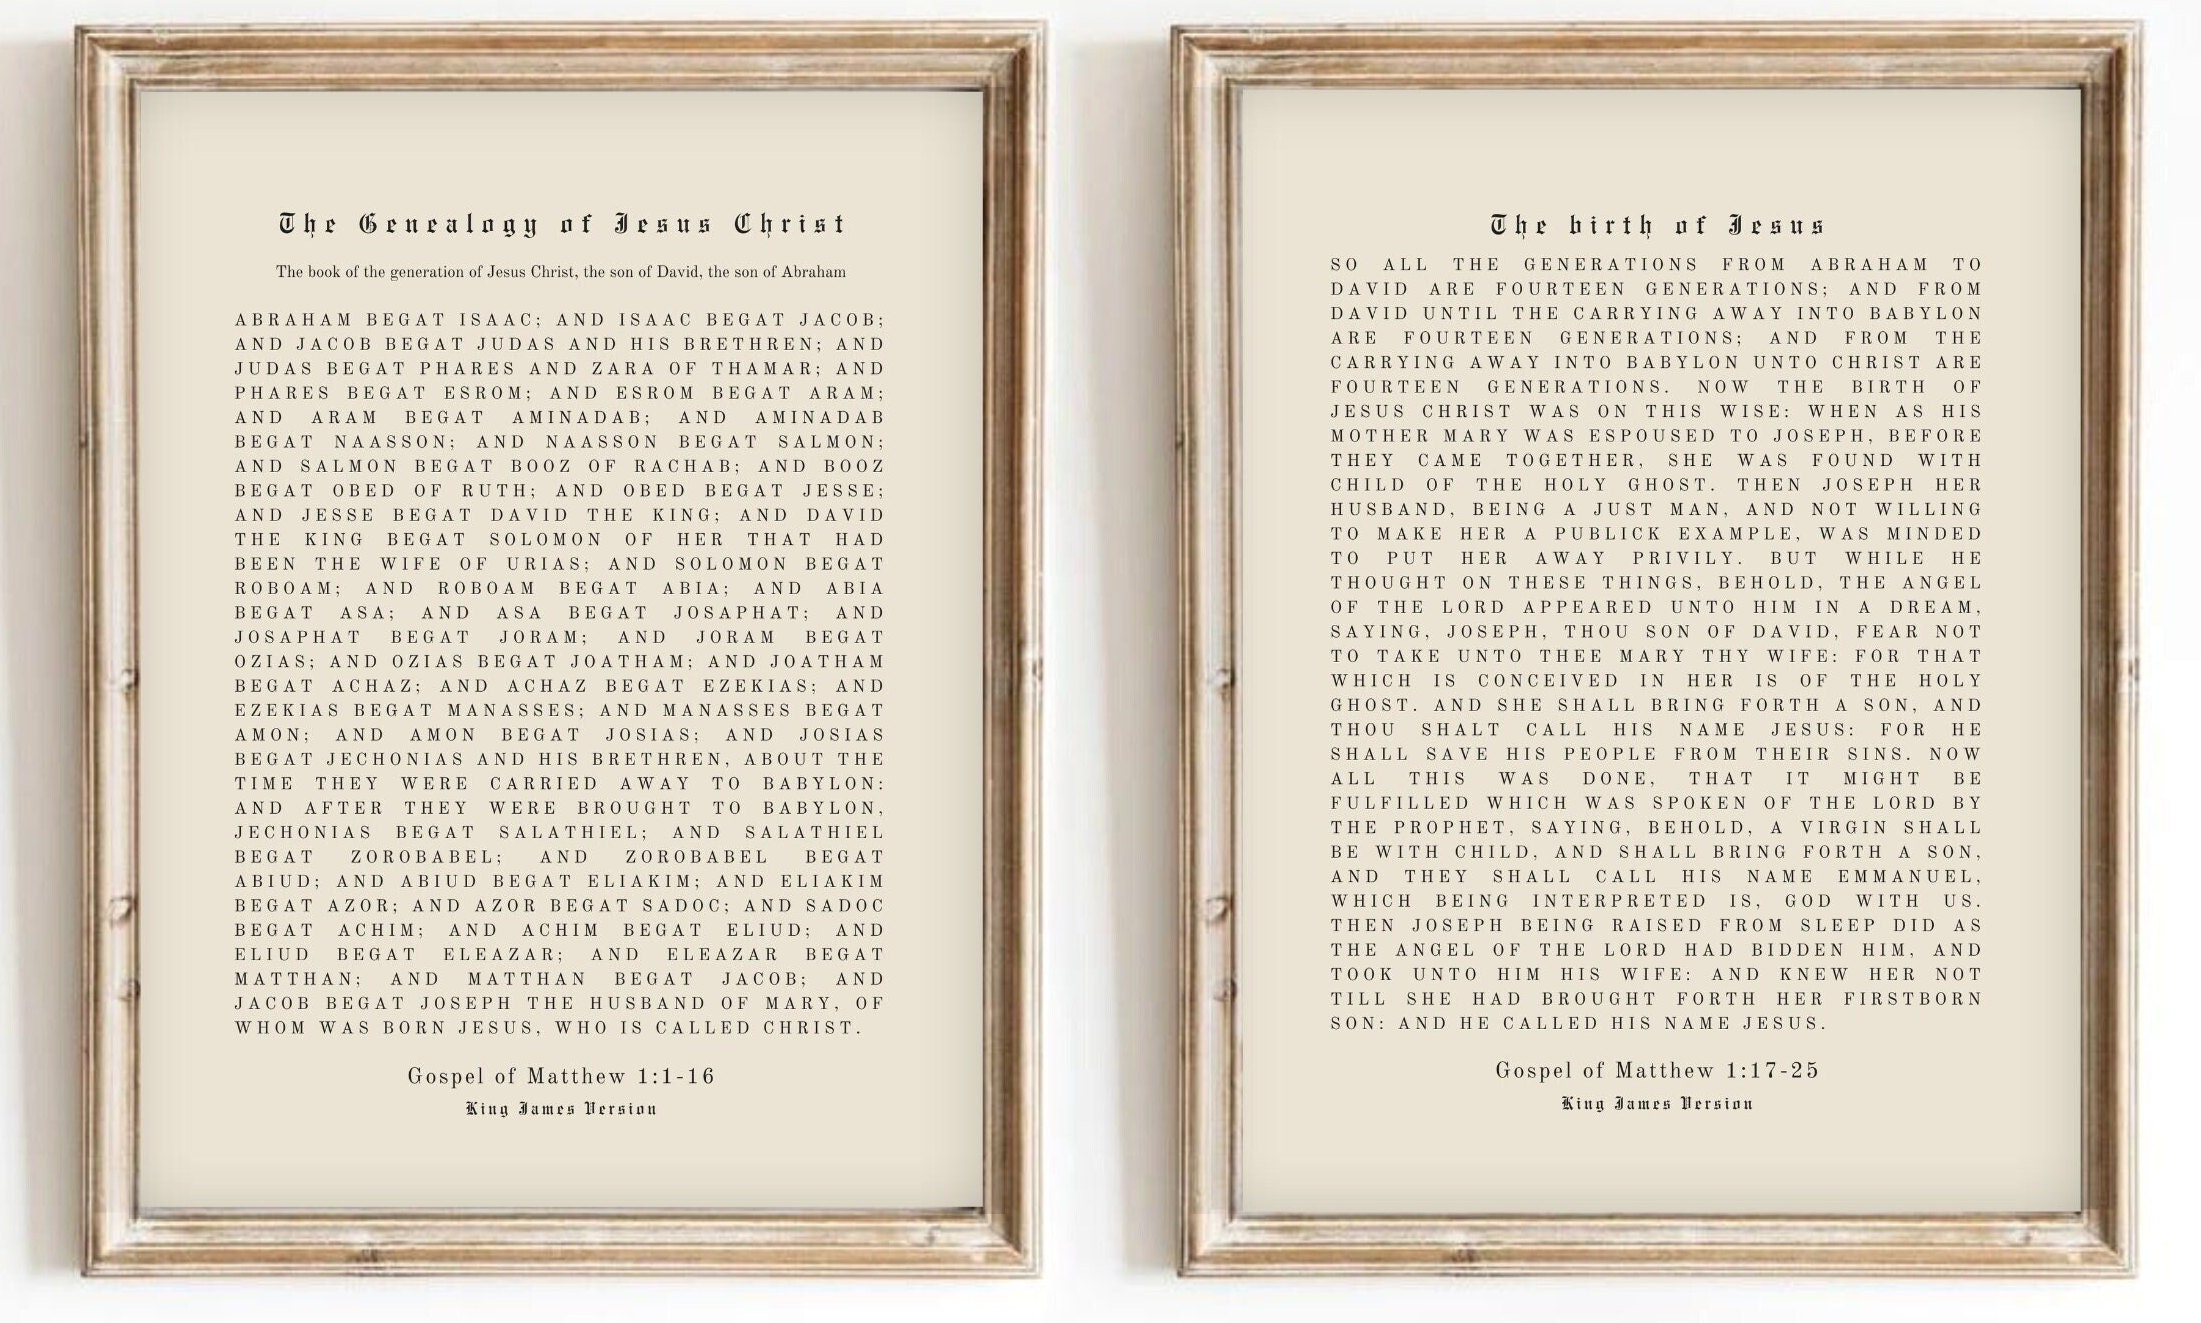 The Genealogy of Jesus Christ
The book of the generation of Jesus Christ, the son of David, the son of Abraham
ABRAHAM BEGAT ISAAC; AND ISAAC BEGAT JACOB;
AND JACOB BEGAT JUDAS AND HIS BRETHREN; AND
JUDAS BEGAT PHARES AND ZARA OF THAMAR; AND
PHARES BEGAT ESROM; AND ESROM BEGAT ARAM;
AND ARAM BEGAT AMINADAB; AND AMINADAB
BEGAT NAASSON; AND NAASSON BEGAT SALMON;
AND SALMON BEGAT BOOZ OF RACHAB; AND BOOZ
BEGAT OBED OF RUTH; AND OBED BEGAT JESSE;
AND JESSE BEGAT DAVID THE KING; AND DAVID
THE KING BEGAT SOLOMON OF HER THAT HAD
BEEN THE WIFE OF URIAS; AND SOLOMON BEGAT
ROBOAM; AND ROBOAM BEGAT ABIA; AND ABIA
BEGAT ASA; AND ASA BEGAT JOSAPHAT; AND
JOSAPHAT BEGAT JORAM; AND JORAM BEGAT
OZIAS; AND OZIAS BEGAT JOATHAM; AND JOATHAM
BEGAT ACHAZ; AND ACHAZ BEGAT EZEKIAS; AND
EZEKIAS BEGAT MANASSES; AND MANASSES BEGAT
AMON; AND AMON BEGAT JOSIAS; AND JOSIAS
BEGAT JECHONIAS AND HIS BRETHREN, ABOUT THE
TIME THEY WERE CARRIED AWAY TO BABYLON:
AND AFTER THEY WERE BROUGHT TO BABYLON,
JECHONIAS BEGAT SALATHIEL; AND SALATHIEL
BEGAT ZOROBABEL; AND ZOROBABEL BEGAT
ABIUD; AND ABIUD BEGAT ELIAKIM; AND ELIAKIM
BEGAT AZOR; AND AZOR BEGAT SADOC; AND SADOC
BEGAT ACHIM; AND ACHIM BEGAT ELIUD; AND
ELIUD BEGAT ELEAZAR; AND ELEAZAR BEGAT
MATTHAN; AND MATTHAN BEGAT JACOB; AND
JACOB BEGAT JOSEPH THE HUSBAND OF MARY, OF
WHOM WAS BORN JESUS, WHO IS CALLED CHRIST.
Gospel of Matthew 1:1-16
King James Version
The birth of Jesus
SO ALL THE GENERATIONS FROM ABRAHAM TO
DAVID ARE FOURTEEN GENERATIONS; AND FROM
DAVID UNTIL THE CARRYING AWAY INTO BABYLON
ARE FOURTEEN GENERATIONS; AND FROM THE
CARRYING AWAY INTO BABYLON UNTO CHRIST ARE
FOURTEEN GENERATIONS. NOW THE BIRTH OF
JESUS CHRIST WAS ON THIS WISE: WHEN AS HIS
MOTHER MARY WAS ESPOUSED TO JOSEPH, BEFORE
THEY CAME TOGETHER, SHE WAS FOUND WITH
CHILD OF THE HOLY GHOST. THEN JOSEPH HER
HUSBAND, BEING A JUST MAN, AND NOT WILLING
TO MAKE HER A PUBLICK EXAMPLE, WAS MINDED
TO PUT HER AWAY PRIVILY. BUT WHILE HE
THOUGHT ON THESE THINGS, BEHOLD, THE ANGEL
OF THE LORD APPEARED UNTO HIM IN A DREAM,
SAYING, JOSEPH, THOU SON OF DAVID, FEAR NOT
TO TAKE UNTO THEE MARY THY WIFE: FOR THAT
WHICH IS CONCEIVED IN HER IS OF THE HOLY
GHOST. AND SHE SHALL BRING FORTH A SON, AND
THOU SHALT CALL HIS NAME JESUS: FOR HE
SHALL SAVE HIS PEOPLE FROM THEIR SINS. NOW
ALL THIS WAS DONE, THAT IT MIGHT BE
FULFILLED WHICH WAS SPOKEN OF THE LORD BY
THE PROPHET, SAYING, BEHOLD, A VIRGIN SHALL
BE WITH CHILD, AND SHALL BRING FORTH A SON,
AND THEY SHALL CALL HIS NAME EMMANUEL,
WHICH BEING INTERPRETED IS, GOD WITH US.
THEN JOSEPH BEING RAISED FROM SLEEP DID AS
THE ANGEL OF THE LORD HAD BIDDEN HIM, AND
TOOK UNTO HIM HIS WIFE: AND KNEW HER NOT
TILL SHE HAD BROUGHT FORTH HER FIRSTBORN
SON: AND HE CALLED HIS NAME JESUS.
Gospel of Matthew 1:17-25
King James Version